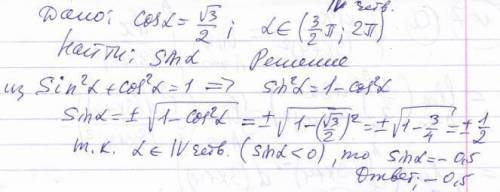 IV четв.
Дано: cosα = √3/2; α∈(3/2π; 2π)
Найти: sinα Решение
из Sin²α + cos²α = 1 => sin²α = 1 - cos²α
Sinα = ± √(1 - cos²α) = ± √(1 - (√3/2)²) = ± √(1 - 3/4) = ± 1/2
т.к. α∈ IV четв. (sinα < 0), то sinα = - 0,5
Ответ: - 0,5